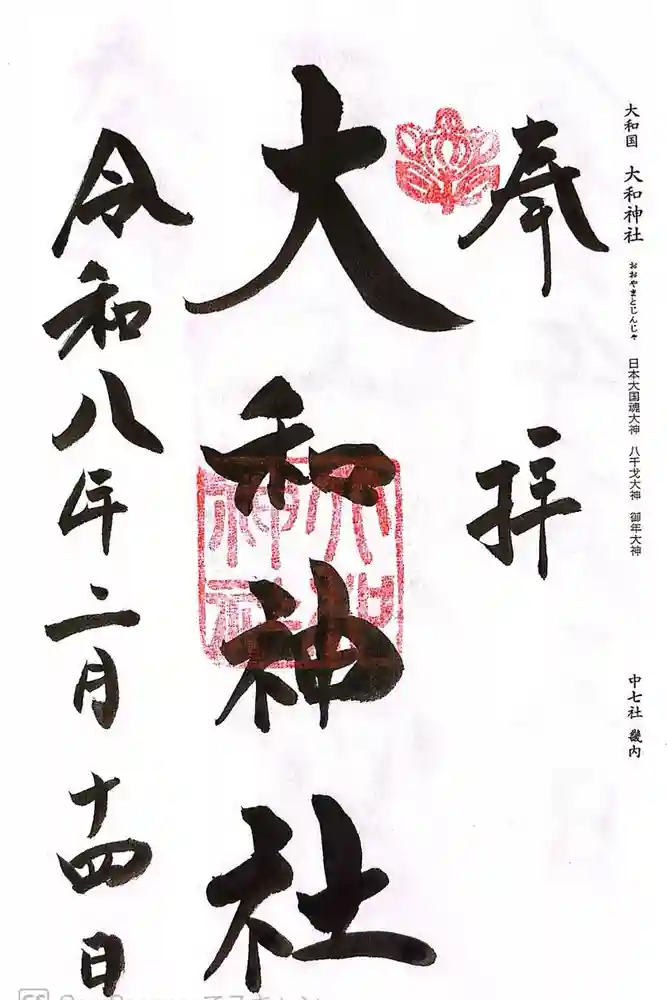 大和国 大和神社 おおやまとじんじゃ 日本大国魂大神 八千戈大神 御年大神 中七社 畿内
奉拝
大和神社
大和神社
令和八年二月十四日